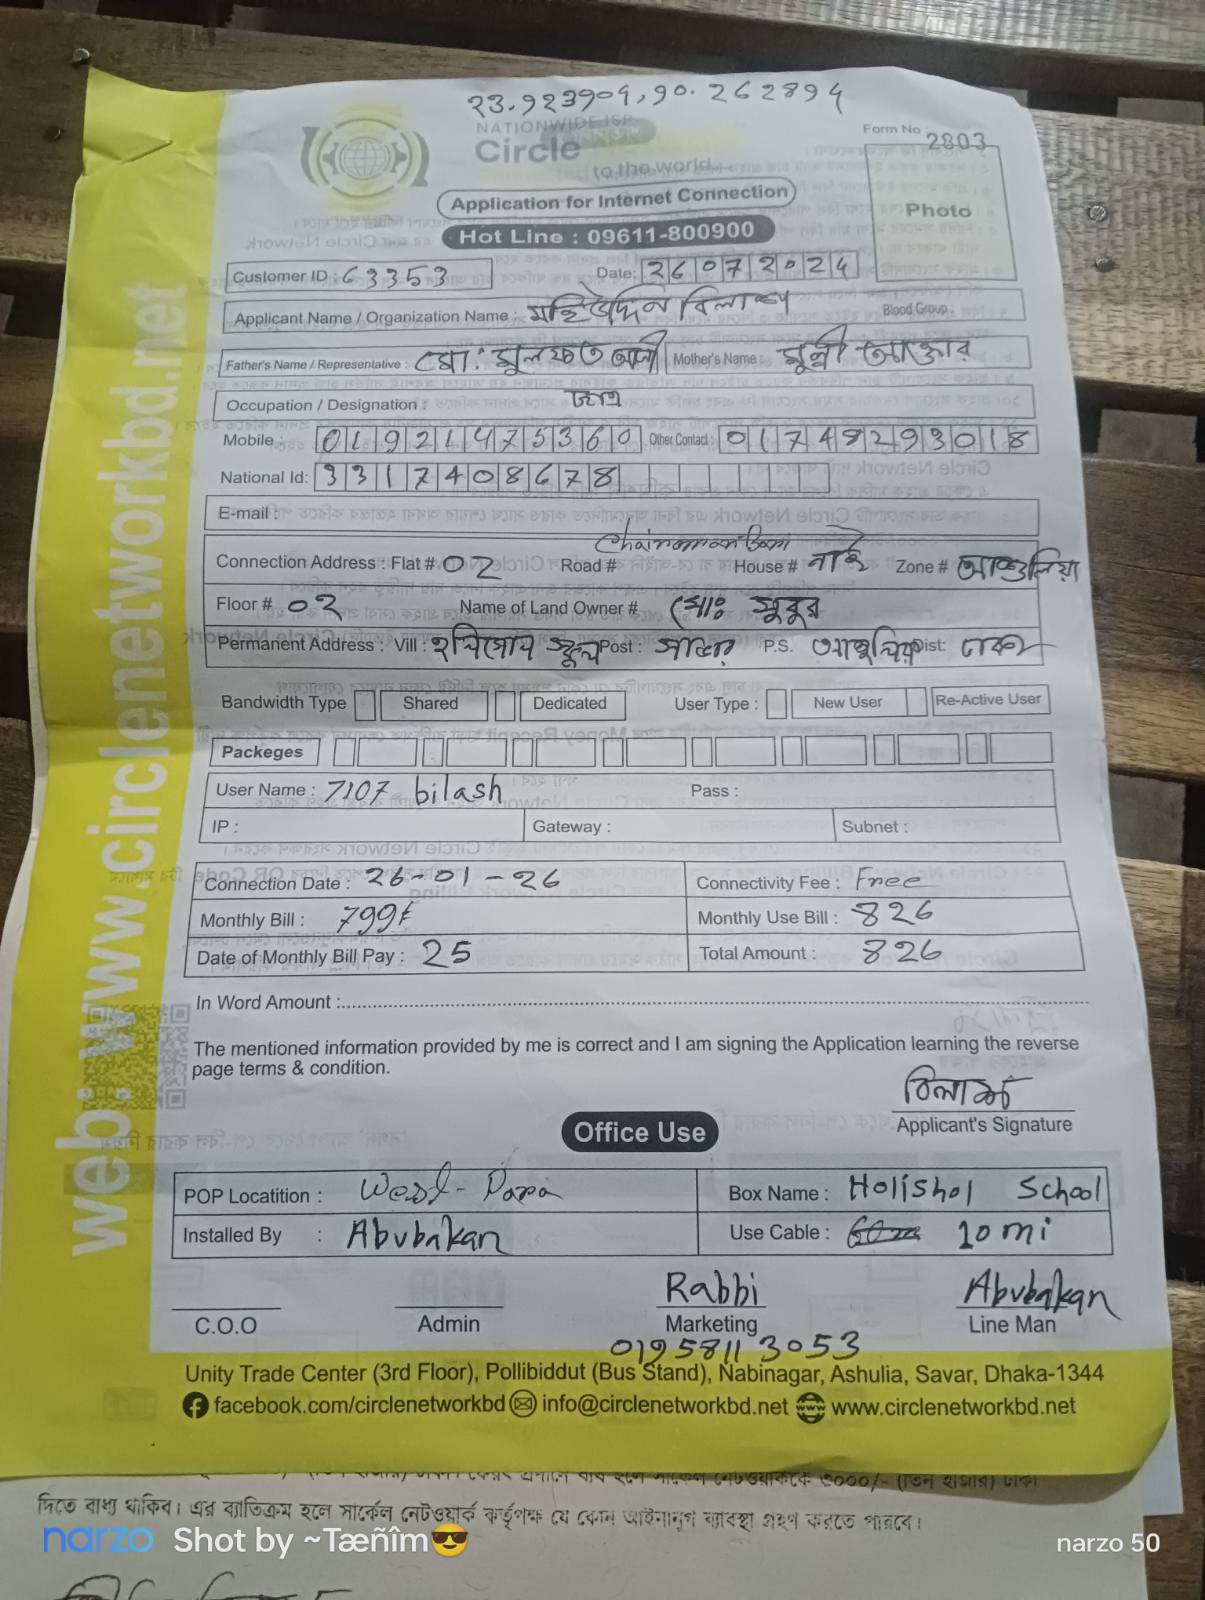 23.923909, 90.262894
NATIONWIDE ISP
Circle
to the world
Form No 2803
Photo
Application for Internet Connection
Hot Line : 09611-800900
Customer ID : 63353 Date: 26072024
Applicant Name / Organization Name : মহিউদ্দিন বিলাশ Blood Group :
Father's Name / Representative : মো: আলী Mother's Name : মুন্নী আক্তার
Occupation / Designation : ছাত্র
Mobile : 01921475360 Other Contact : 01749293018
National Id: 3317408678
E-mail :
Connection Address : Flat # 02 Road # Chairman Bari House # নাই Zone # আশুলিয়া
Floor # 02 Name of Land Owner # মোঃ সুবুর
Permanent Address : Vill : স্কুল Post : সাভার P.S. আশুলিয়া Dist: ঢাকা
Bandwidth Type Shared Dedicated User Type : New User Re-Active User
Packeges
User Name : 7107 bilash Pass :
IP : Gateway : Subnet :
Connection Date : 26-01-26 Connectivity Fee : Free
Monthly Bill : 799৳ Monthly Use Bill : 826
Date of Monthly Bill Pay : 25 Total Amount : 826
In Word Amount :
The mentioned information provided by me is correct and I am signing the Application learning the reverse
page terms & condition.
বিলাশ
Applicant's Signature
Office Use
POP Locatition : West-Para Box Name : Holishol School
Installed By : Abubakar Use Cable : 10 mi
Rabbi Abubakar
C.O.O Admin Marketing Line Man
01958113053
Unity Trade Center (3rd Floor), Pollibiddut (Bus Stand), Nabinagar, Ashulia, Savar, Dhaka-1344
facebook.com/circlenetworkbd info@circlenetworkbd.net www.circlenetworkbd.net
web: www.circlenetworkbd.net
দিতে বাধ্য থাকিব। এর ব্যাতিক্রম হলে সার্কেল নেটওয়ার্ক কর্তৃপক্ষ যে কোন আইনানুগ ব্যবস্থা গ্রহণ করতে পারবে।
narzo Shot by ~Tæñîm😎 narzo 50